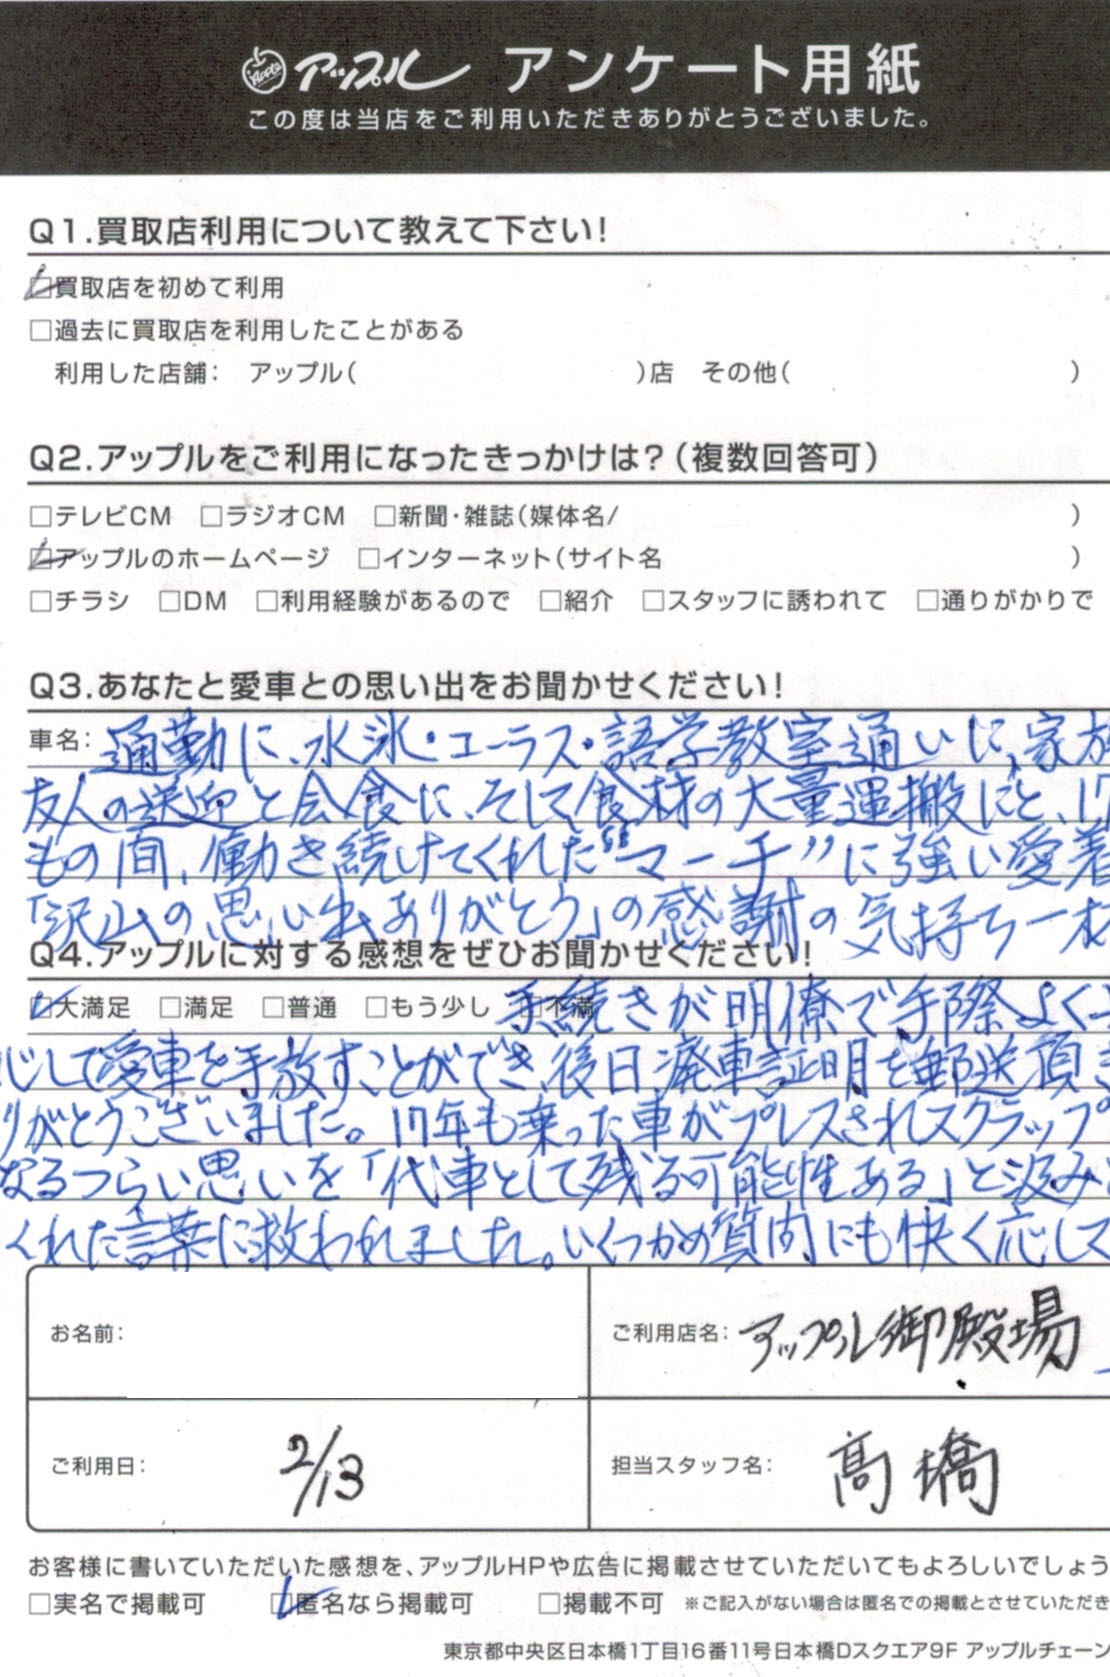 Apple アップル アンケート用紙
この度は当店をご利用いただきありがとうございました。
Q1.買取店利用について教えて下さい!
☑買取店を初めて利用
□過去に買取店を利用したことがある
利用した店舗: アップル( )店 その他( )
Q2.アップルをご利用になったきっかけは?(複数回答可)
□テレビCM □ラジオCM □新聞・雑誌(媒体名/ )
☑アップルのホームページ □インターネット(サイト名 )
□チラシ □DM □利用経験があるので □紹介 □スタッフに誘われて □通りがかりで
Q3.あなたと愛車との思い出をお聞かせください!
車名: 通勤に、水泳・コーラス・語学教室通いに、家族
友人の送迎と会食に、そして食材の大量運搬にと、17
もの間、働き続けてくれた“マーチ”に強い愛着
「沢山の思い出ありがとう」の感謝の気持ち一杯
Q4.アップルに対する感想をぜひお聞かせください!
☑大満足 □満足 □普通 □もう少し □不満 手続きが明僚で手際よく
心して愛車を手放すことができ、後日廃車証明を郵送頂き
りがとうございました。17年も乗った車がプレスされスクラップ
なるつらい思いを「代車として残る可能性ある」と汲み
くれた言葉に救われました。いくつかの質問にも快く応じて
お名前:
ご利用店名: アップル御殿場
ご利用日: 2/13
担当スタッフ名: 高橋
お客様に書いていただいた感想を、アップルHPや広告に掲載させていただいてもよろしいでしょう
□実名で掲載可 ☑匿名なら掲載可 □掲載不可 ※ご記入がない場合は匿名での掲載とさせていただき
東京都中央区日本橋1丁目16番11号日本橋Dスクエア9F アップルチェーン